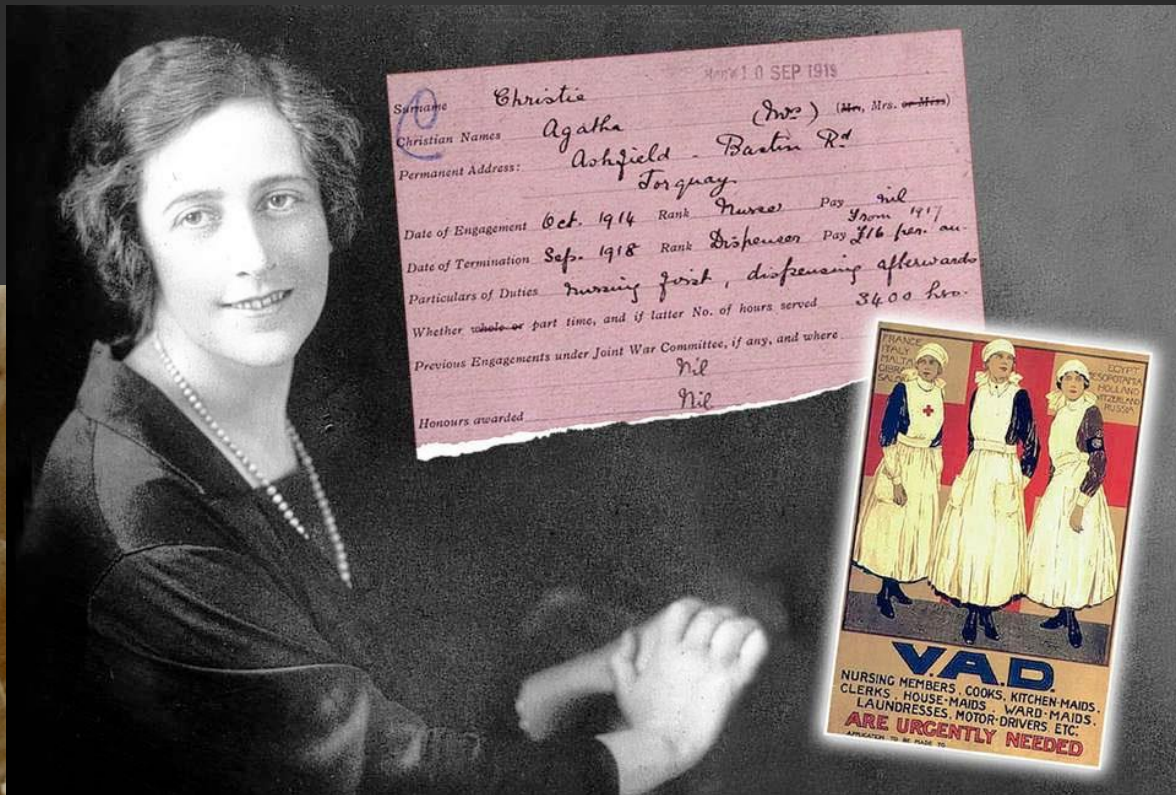 Rec'd 10 SEP 1919
C
Surname Christie
Christian Names Agatha (Mrs) (Mr, Mrs. or Miss)
Permanent Address: Ashfield - Barton Rd
Torquay
Date of Engagement Oct. 1914 Rank Nurse Pay nil
from 1917
Date of Termination Sep. 1918 Rank Dispenser Pay £16 per. an.
Particulars of Duties nursing first, dispensing afterwards
Whether whole or part time, and if latter No. of hours served 3400 hrs.
Previous Engagements under Joint War Committee, if any, and where
Nil
Honours awarded Nil
FRANCE
ITALY
MALTA
EGYPT
MESOPOTAMIA
HOLLAND
SWITZERLAND
RUSSIA
V.A.D.
NURSING MEMBERS, COOKS, KITCHEN-MAIDS,
CLERKS, HOUSE-MAIDS, WARD-MAIDS,
LAUNDRESSES, MOTOR-DRIVERS ETC.
ARE URGENTLY NEEDED
APPLICATION TO BE MADE TO